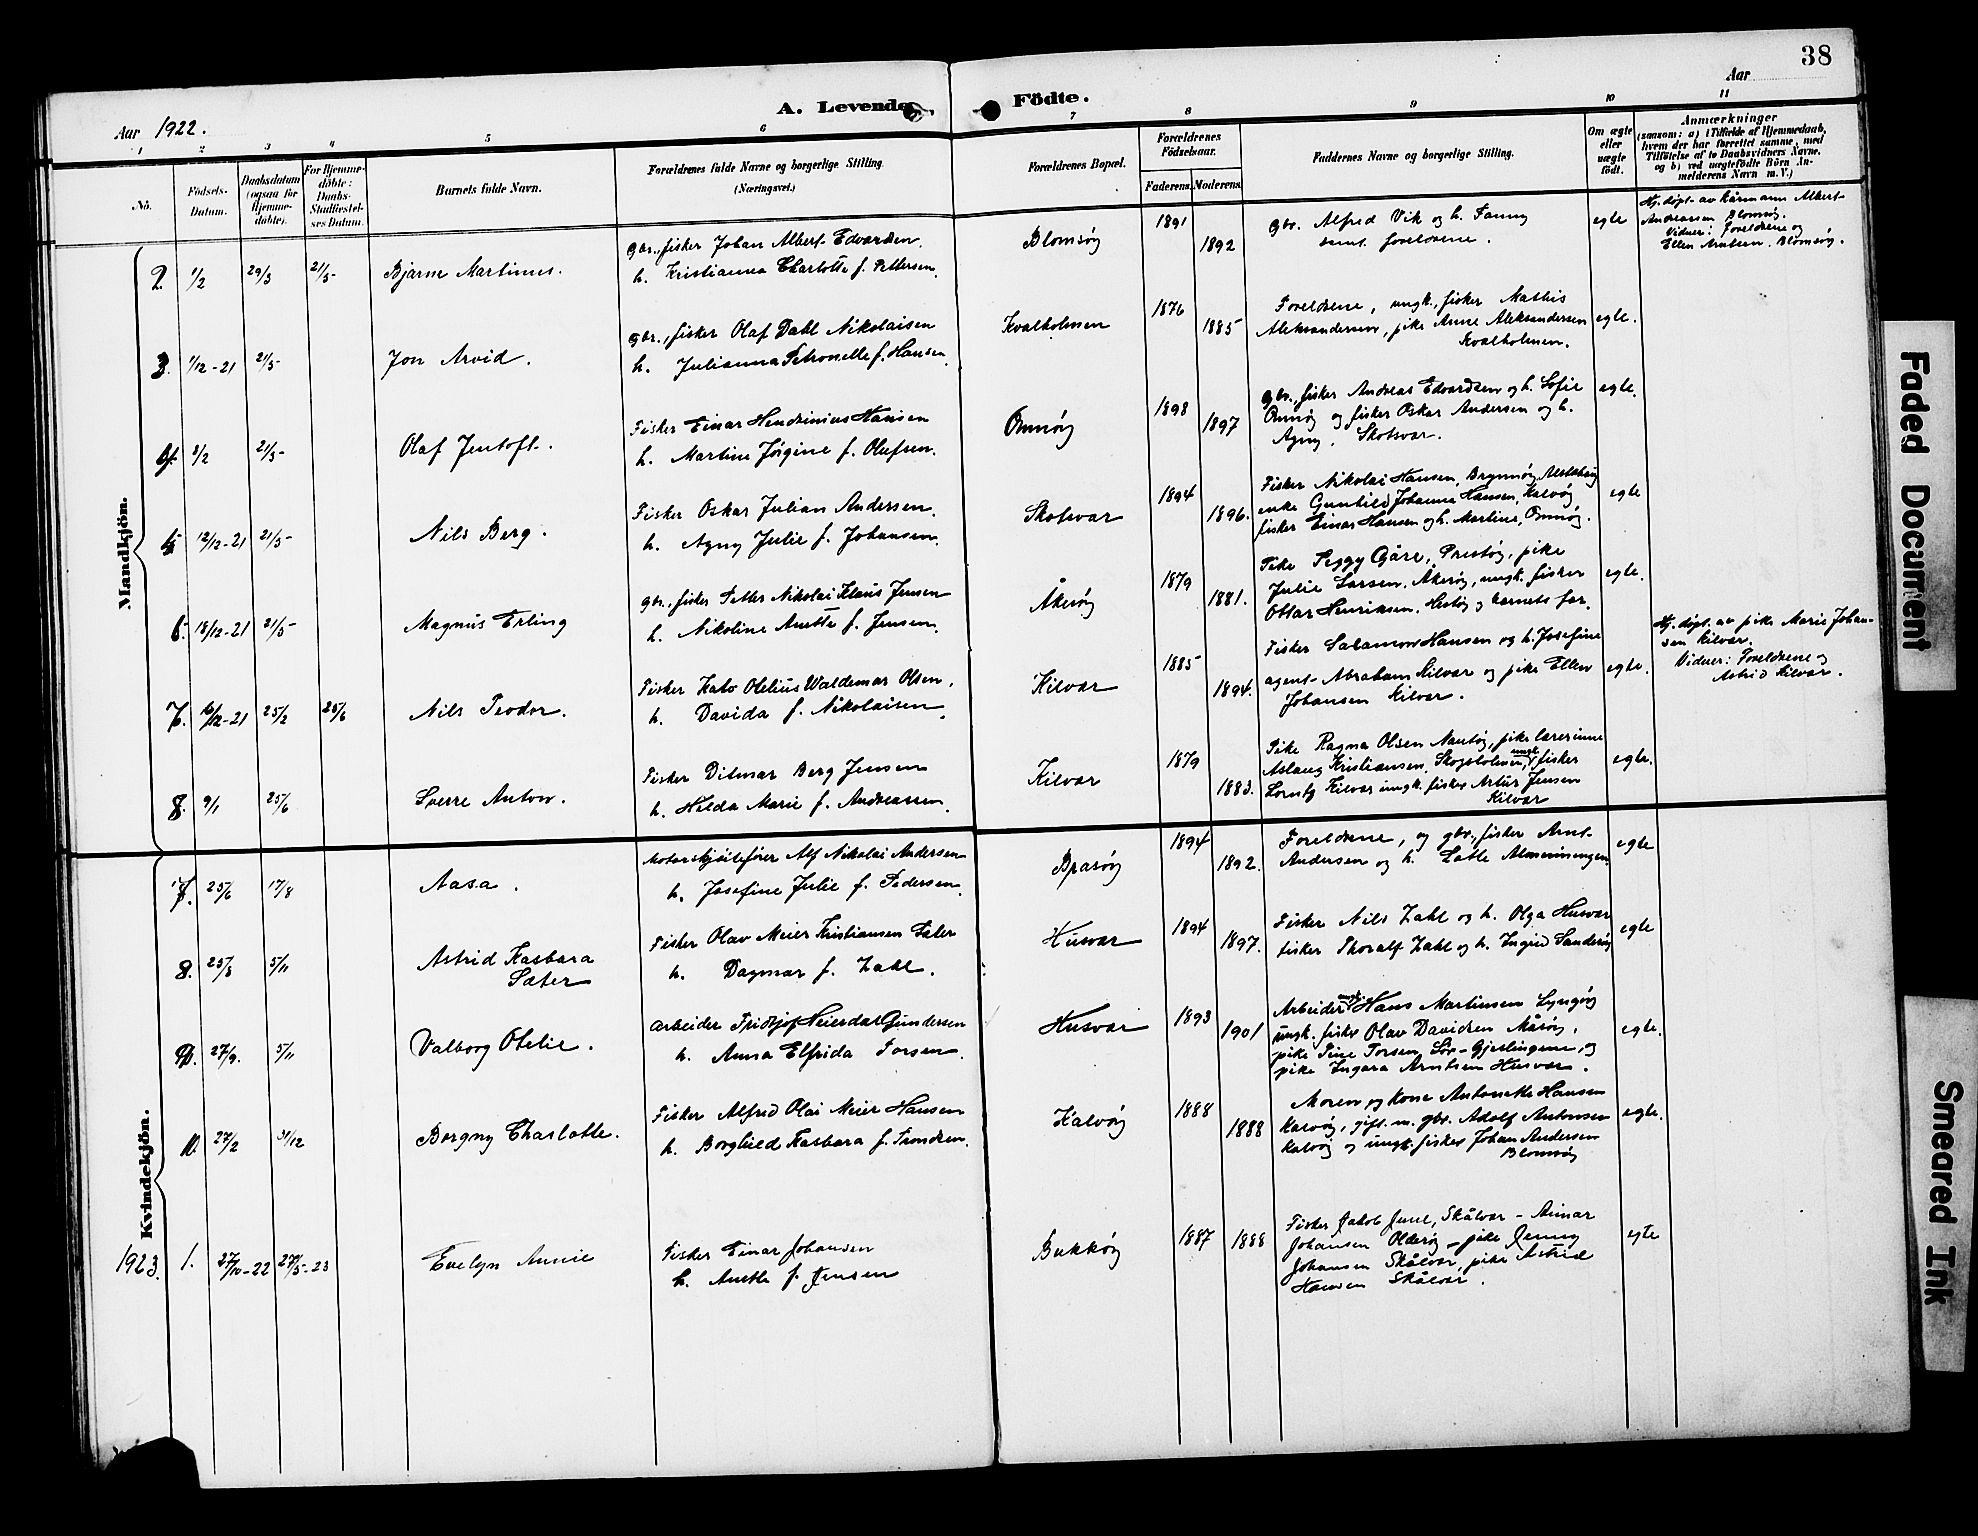 38
A. Levende Födte.
Aar 1922.
Aar
1 2 3 4 5 6 7 8 9 10 11
Nö.
Födsels-
Datum.
Daabsdatum
(ogsaa for
Hjemme-
döbte).
For Hjemme-
döbte:
Daabs-
Stadfæstel-
ses Datum.
Barnets fulde Navn.
Forældrenes fulde Navne og borgerlige Stilling.
(Næringsvei.)
Forældrenes Bopæl.
Forældrenes
Födselsaar.
Faderens.
Moderens.
Faddernes Navne og borgerlige Stilling.
Om ægte
eller
uægte
födt.
Anmærkninger
(saasom: a) i Tilfælde af Hjemmedaab,
hvem der har forrettet samme, med
Tilföielse af to Daabsvidners Navne.
og b) ved uægtefödte Börn An-
melderens Navn m. V.)
Mandkjön.
2. 1/2 29/3 21/5 Bjarne Martinus.
gbr., fisker Johan Albert Edvardsen
h. Kristianna Charlotte f. Pettersen.
Blomsöy 1891 1892
gbr. Alfred Vik og h. Fanny
samt foreldrene.
egte
Hj. døpt av kårmann Albert
Andreassen Blomsöy.
Vidner: Foreldrene og
Ellen Arntsen. Blomsöy.
3. 1/12-21 21/5 Jon Arvid.
gbr., fisker Olaf Dahl Nikolaisen
h. Julianna Petronelle f. Hansen
Kvalholmen 1876 1885
Foreldrene, ungk., fisker Mathis
Aleksandersen, pike Anne Aleksandersen
Kvalholmen.
egte.
4. 8/2 21/5 Olaf Jentoft.
Fisker Einar Hendrinius Hansen
h. Martine Jörgine f. Olufsen.
Ommöy 1898 1897
gbr., fisker Andreas Edvardsen og h. Sofie
Ommöy og fisker Oskar Andersen og h.
Agny, Skotsvar.
egte.
5. 12/12-21 21/5 Nils Berg.
Fisker Oskar Julian Andersen.
h. Agny Julie f. Johansen.
Skotsvar 1894 1896.
Fisker Nikolai Hansen, Brynnöy, Alstahaug
enke Gunhild Johanne Hansen, Kalvöy
fisker Einar Hansen og h. Martine, Ommöy.
egte
6. 18/12-21 21/5 Magnus Erling
gbr., fisker Petter Nikolai Klaus Jensen
h. Nikoline Anette f. Jensen.
Åkeröy 1879 1881.
Pike Peggy Gåre, Prestöy, pike
Julie Larsen, Åkeröy, ungk. fisker
Ottar Henriksen, Hestöy og barnets far.
egte.
7. 16/12-21 25/2 25/6 Nils Teodor.
Fisker Kato Otelius Waldemar Olsen,
h. Davida f. Nikolaisen
Kilvær 1885 1894.
Fisker Salamon Hansen og h. Josefine
agent Abraham Kilvær og pike Ellen
Johansen Kilvær.
egte.
Hj. døpt. av pike Marie Johan-
sen Kilvær.
Vidner: Foreldrene og
Astrid Kilvær.
8. 9/1 25/6 Sverre Anton.
Fisker Ditmar Berg Jensen
h. Hilda Marie f. Andreassen.
Kilvær 1879 1883.
Pike Ragna Olsen Nautöy, pike lærerinne
Aslaug Kristiansen, Skogsholmen, ungk. fisker
Lorntz Kilvær ungk. fisker Artur Jensen
Kilvær
egte.
Kvindekjön.
7. 25/6 17/8 Aasa.
Motorskjöitefører Alf Nikolai Andersen
h. Josefine Julie f. Pedersen.
Brasöy 1894 1892.
Foreldrene, og gbr., fisker Arnt
Andersen og h. Lotte Almenningen.
egte
8. 25/8 5/11 Astrid Kasbara
Sæter
Fisker Olav Meier Kristiansen Sæter
h. Dagmar f. Zahl.
Husvær 1894 1897.
Fisker Nils Zahl og h. Olga Husvær
fisker Thoralf Zahl og h. Ingrid Sanderöy
egte
9. 27/9. 5/11 Valborg Otelie.
Arbeider Fridtjof Meierdal Gundersen
h. Anna Elfrida Torsen.
Husvær 1893 1901
Arbeider ungk. Hans Martinsen Lyngöy
ungk. fisker Olav Davidsen Måsöy,
pike Tine Torsen, Sör-Gjeslingene, og
pike Ingara Arntsen Husvær.
egte.
10. 27/2 31/12 Borgny Charlotte.
Fisker Alfred Olai Meier Hansen
h. Borghild Kasbara f. Trondsen.
Kalvöy 1888 1888
Moren og kone Antonette Hansen
Kalvöy, gift m. gbr. Adolf Antonsen
Kalvöy og ungk. fisker Johan Andersen
Blomsöy
egte.
1923. 1. 27/10-22 27/5-23 Evelyn Annie
Fisker Einar Johansen
h. Anette f. Jensen
Bukköy 1887 1888
Fisker Jakob Juul, Skålvær - Annar
Johansen Olderöy - pike Jenny
Johansen Skålvær, pike Astrid
Hansen Skålvær.
egte
Faded Document
Smeared Ink